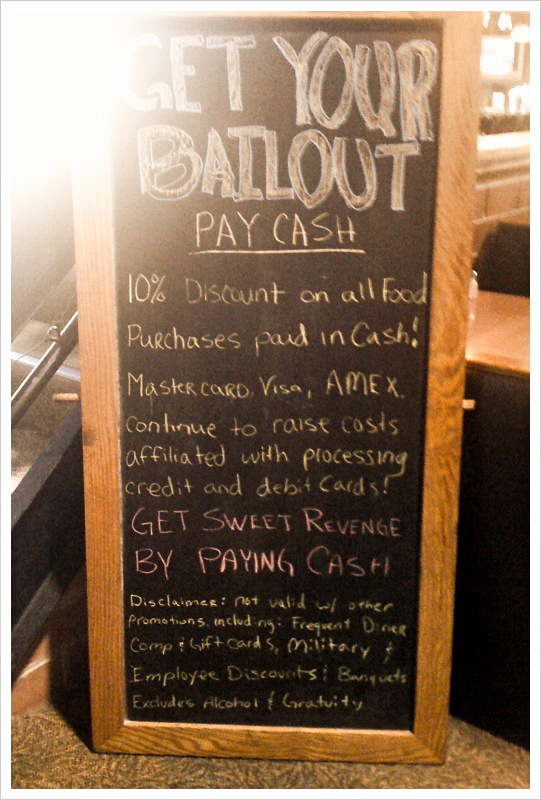 GET YOUR
BAILOUT
PAY CASH
10% Discount on all Food
Purchases paid in Cash!
Mastercard, Visa, AMEX.
continue to raise costs
affiliated with processing
credit and debit cards!
GET SWEET REVENGE
BY PAYING CASH
Disclaimer: not valid w/ other
Promotions, including: Frequent Diner
Comp & Gift cards, Military &
Employee Discounts & Banquets
Excludes Alcohol & Gratuity